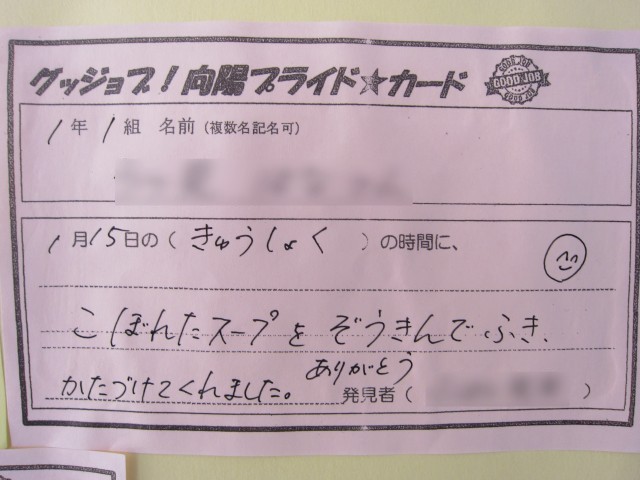 グッジョブ！向陽プライド☆カード
GOOD JOB
GOOD JOB
GOOD JOB
1年1組 名前（複数名記名可）
1月15日の（きゅうしょく）の時間に、
こぼれたスープをぞうきんでふき、
かたづけてくれました。ありがとう
発見者（ ）